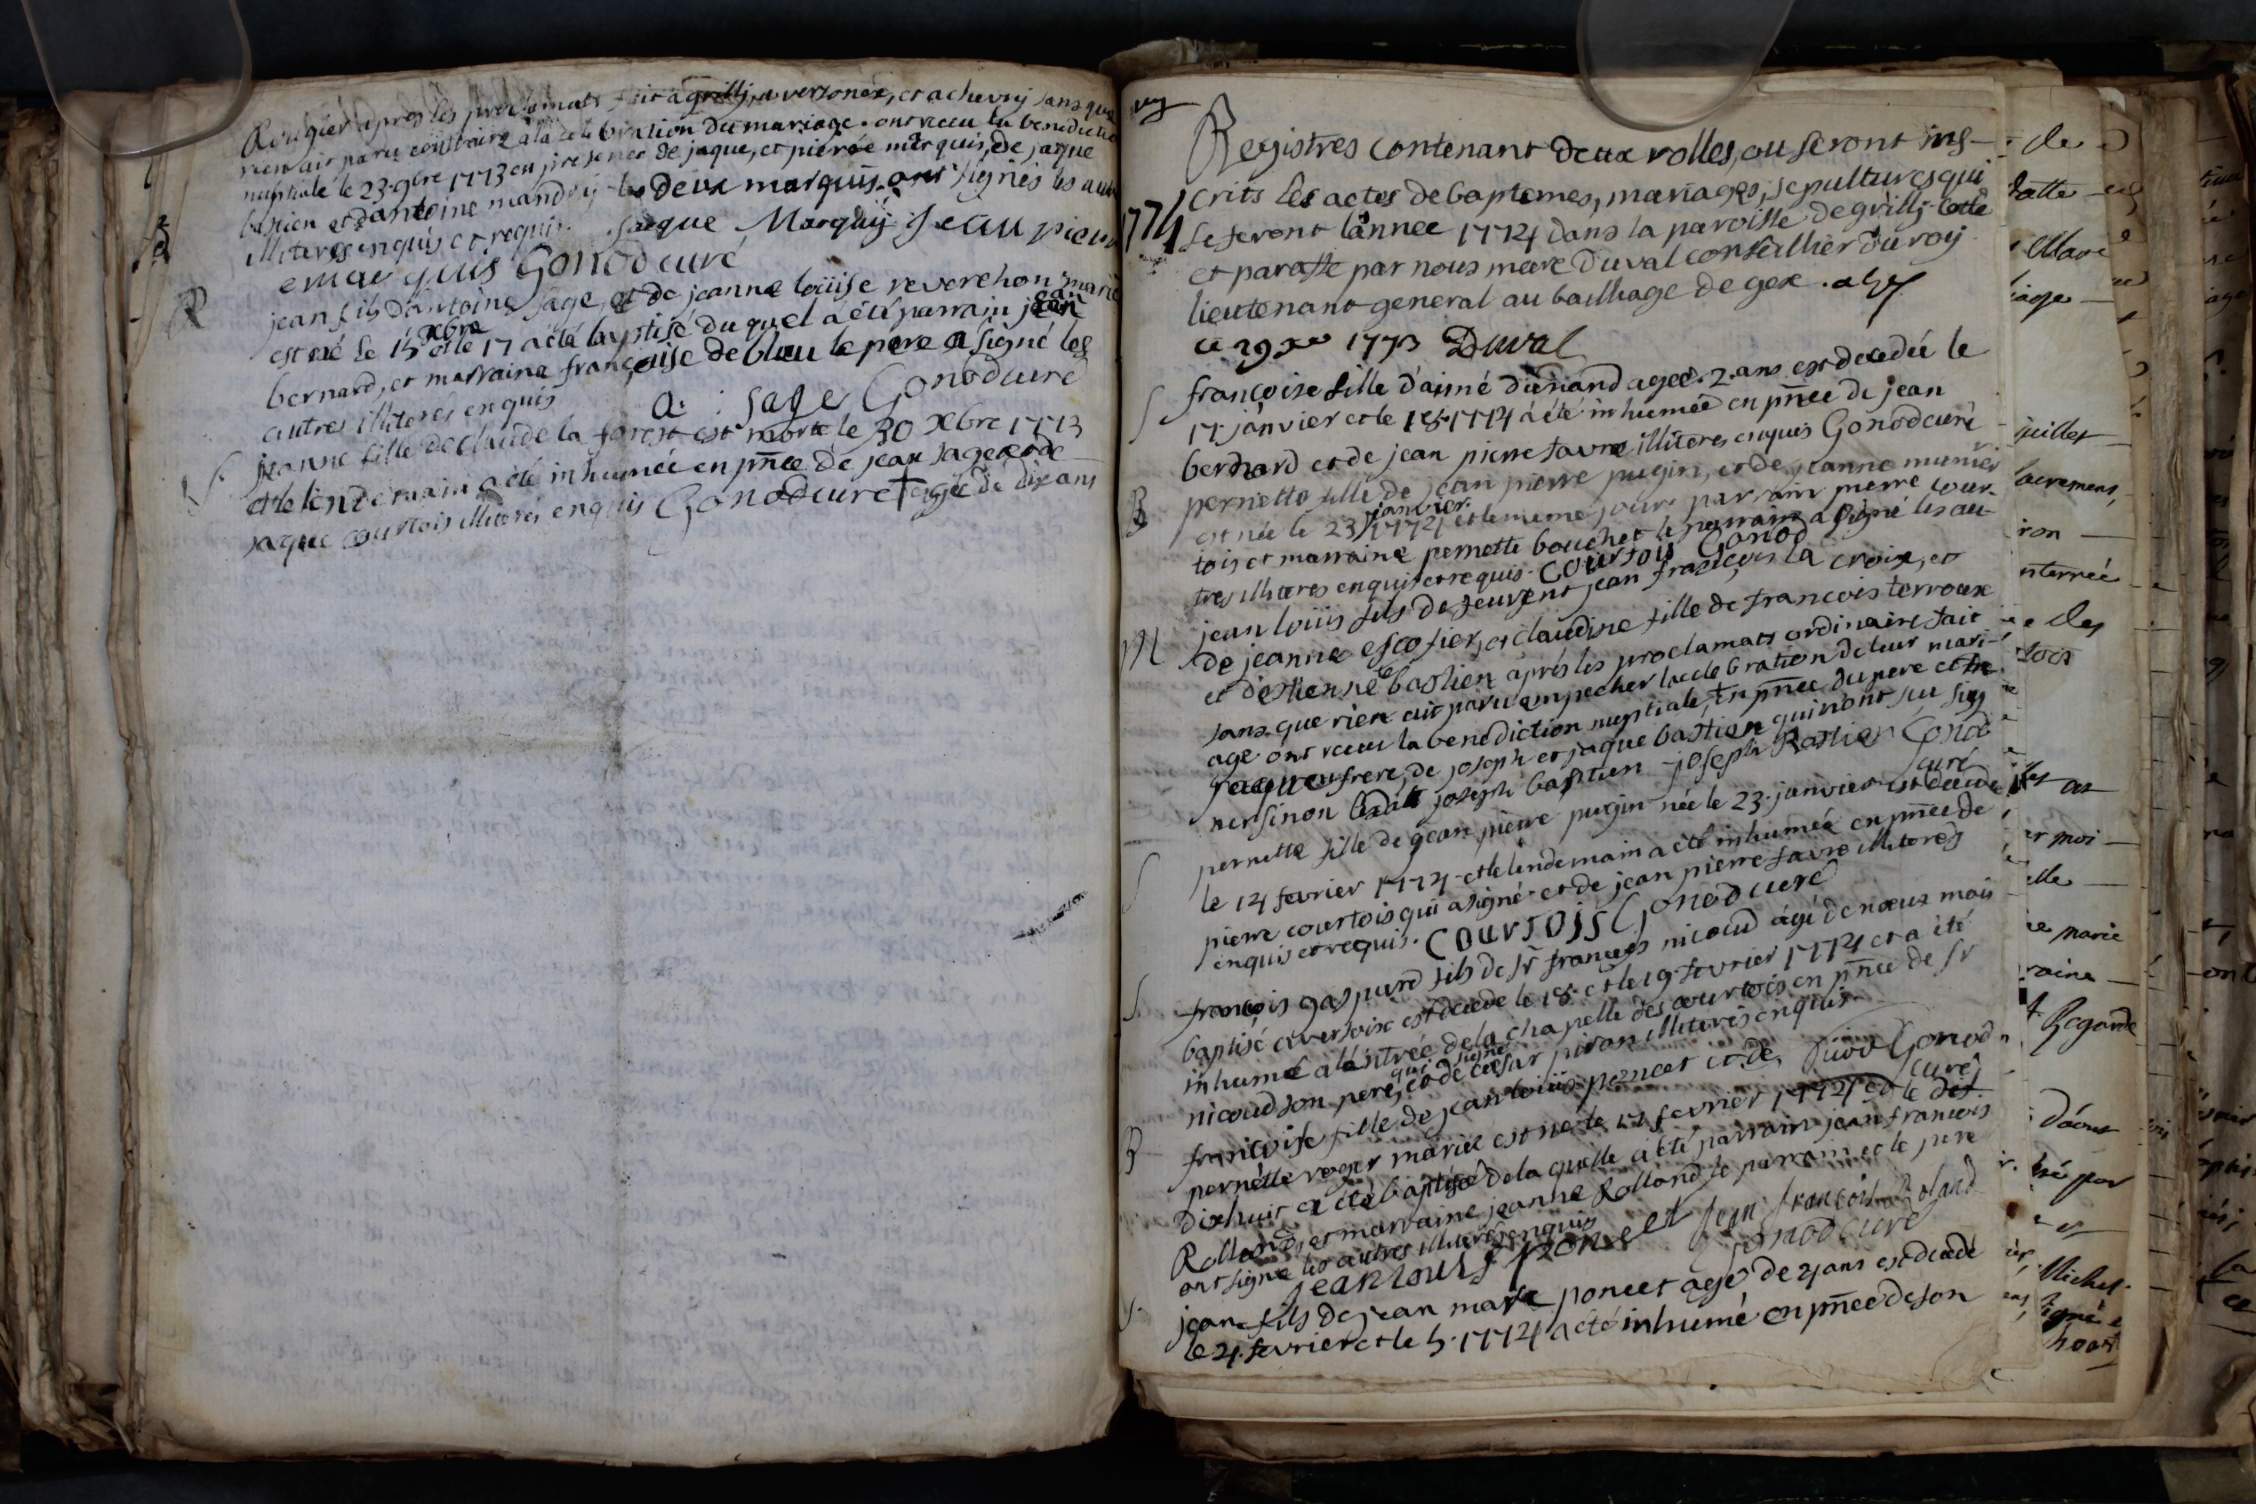 Rougier apres les proclamats fait a grilly, a versonex, et a chevry sans que
rien ait paru contraire a la celebration du mariage. ont receu la benedictio
nuptiale le 23. 9bre 1773 en presence de jaque, et pierre marquis, de jaque
bastien et d'antoine mandry les deux marquis ont signés les au
illiteres enquis et requis. Jaque Marquis Jean pierr
e marquis Gonod curé
B
jean fils d'antoine sage, et de jeanne louise reverchon marié
est né le 15 xbre et le 17 a été baptisé du quel a été parrain jean
bernard, et marraine françoise deblau le pere a signé les
autres illiterés enquis a. sage Gonod curé
S.
jeanne fille de claude la forest est morte le 30 xbre 1773
et le lendemain a été inhumée en pnce de jean sage et de
jaque courtois illiterés enquis Gonod curé † agée de dix ans
Registres contenant deux rolles, ou seront ins-
crits les actes de baptemes, mariages, sepultures qui
1774
se feront l'année 1774 dans la paroisse de grilly cotté
et paraffé par nous Duval conseillier du roy
lieutenant general au bailliage de gex. a gex
ce 29 xbre 1773 Duval
S
françoise fille d'aimé durand agée. 2. ans est decedée le
17. janvier et le 18. 1774 a été inhumée en pnce de jean
bernard et de jean pierre favre illiteres enquis Gonod curé
B
pernette fille de jean pierre pugin, et de jeanne munier
est née le 23 janvier. 1774 et le meme jour parrain pierre cour-
tois et marraine pernette bouchet le parrain a signé les au-
tres illiteres enquis et requis. Courtois Gonod
M
jean louis fils de feu jean françois la croix, et
de jeanne escofier, et claudine fille de francois terroux
et d'estienne bastien aprés les proclamats ordinaires fait
sans que rien ait paru empecher la celebration de leur mari-
age ont receu la benediction nuptiale, en pnce du pere
frere, de joseph et jaque bastien qui n'ont su sig
ner sinon joseph bastien joseph Bastien Gonod
curé
S
pernette fille de jean pierre pugin née le 23. janvier est decedé
le 14 fevrier 1774. et le lendemain a été inhumée en pnce de
pierre courtois qui a signé. et de jean pierre favre illiteres
enquis et requis. Courtois Gonod curé
S.
françois gaspard fils de sr françois nicoud agé de noeuf mois
baptisé a versoix est decede le 18. et le 19. fevrier 1774 et a été
inhumé a l'entrée de la chapelle des courtois en pnce de sr
nicoud son pere, qui signé et de cesar piron illiterés enquis.
Gonod
curé
B
françoise fille de jean louis poncet et de
pernette roger mariée est née le 17 fevrier 1774 et le dit
dixhuit a été baptisé de la quelle a été parrain jean francois
Rolland, et marraine jeanne Rolland le parrain et le pere
ont signé les autres illiterés enquis
jean louis poncet jean francois Roland
Gonod curé
S.
jean fils de jean marc poncet agé de 4 ans est decedé
le 4. fevrier et le 5. 1774 a été inhumé en pnce de son
juillet
sacremens,
nterrée
r moi
elle
marie
raine
Michel